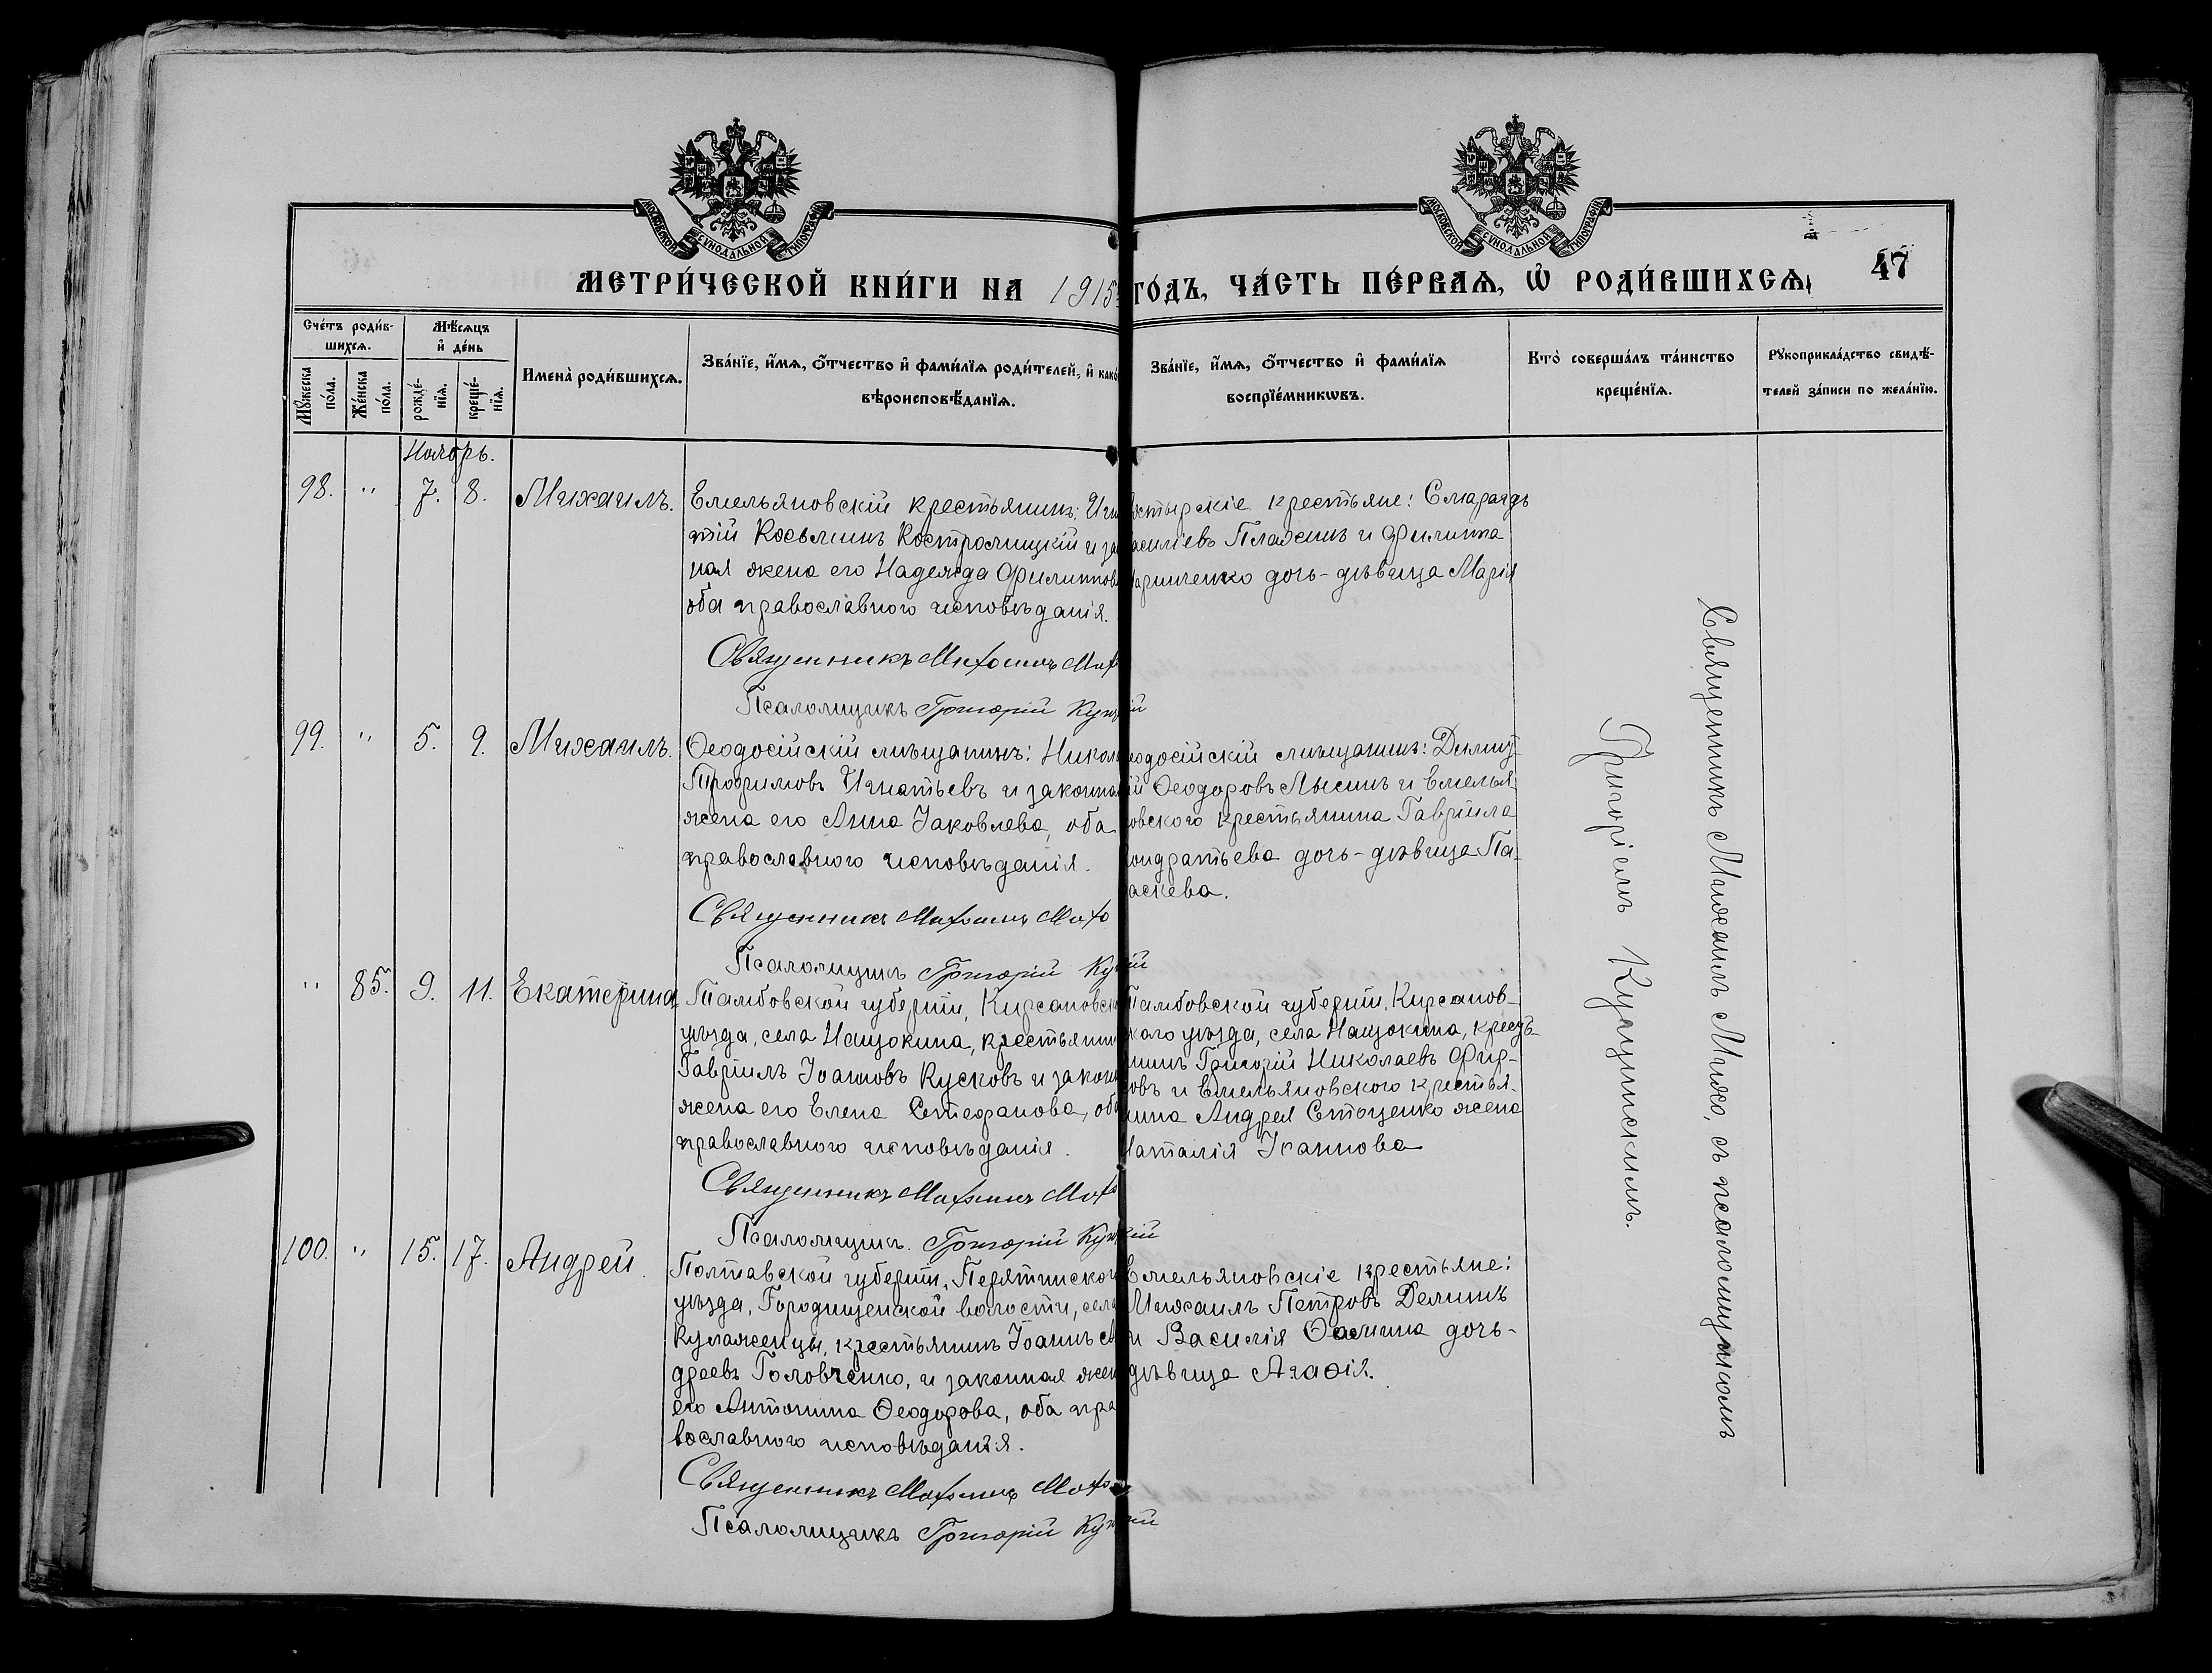 МОСКОВСКОЙ СѴНОДАЛЬНОЙ ТИПОГРАФІИ
МОСКОВСКОЙ СѴНОДАЛЬНОЙ ТИПОГРАФІИ
МЕТРИ́ЧЕСКОЙ КНИ́ГИ НА 1915
ГО́ДЪ, ЧА́СТЬ ПЕ́РВАѦ, Ѡ҆ РОДИ́ВШИХСѦ.
47
Сче́тъ роди́в-
шихсѧ.
Мꙋ́жеска по́ла.
Же́нска по́ла.
Мѣ́сѧцъ
и҆ де́нь
рожде́-
нїѧ.
креще́-
нїѧ.
Имена̀ роди́вшихсѧ.
Зва́нїе, и҆́мѧ, ѻ҆́тчество и҆ фами́лїѧ роди́телей, и҆ како
вѣроисповѣ́данїѧ.
Зва́нїе, и҆́мѧ, ѻ҆́тчество и҆ фами́лїѧ
воспрїе́мникѡвъ.
Кто̀ соверша́лъ та́инство
креще́нїѧ.
Рꙋкоприкла́дство свидѣ́-
телей за́писи по жела́нїю.
Ноябрь.
98. " 7. 8. Михаилъ.
Емельяновскій крестьянинъ: Игн
тій Косьминъ Костромицкій и за
ная жена его Надежда Филиппов
оба православного исповѣданія.
Священникъ Михаилъ Мих
Псаломщикъ Григорій Куш
ій
стырскіе крестьяне: Смарагдъ
асиліевъ Плаксинъ и Филиппа
аринченко дочь-дѣвица Марія
99. " 5. 9. Михаилъ.
Ѳеодосійскій мѣщанинъ: Никол
Трофимовъ Игнатьевъ и законна
жена его Анна Іаковлева, оба
православного исповѣданія.
Священникъ Михаилъ Михо
Псаломщикъ Григорій Ку
ій
еодосійскій мѣщанинъ: Димит-
ій Ѳеодоровъ Лысинъ и Емелья-
овского крестьянина Гавріила
ондратьева дочь-дѣвица Па-
аскева.
" 85. 9. 11. Екатерина
Тамбовской губерніи, Кирсановск
уѣзда, села Нащокина, крестьянин
Гавріилъ Іоанновъ Кусковъ и закон
жена его Елена Стефанова, оба
православного исповѣданія.
Священникъ Михаилъ Михо
Псаломщикъ. Григорій Куш
кій
Тамбовской губерніи, Кирсанов-
кого уѣзда, села Нащокина, кресть-
нинъ Григорій Николаевъ Фир-
овъ и Емельяновского крестья-
нина Андрея Стоценко жена
Наталія Іоаннова
100. " 15. 17. Андрей.
Полтавской губерніи, Перятинског
уѣзда, Городищенской волости, села
крестьянинъ Іоаннъ
дреевъ Головченко, и законная жен
его Антонина Ѳеодорова, оба пра
вославного исповѣданія.
Священникъ Михаилъ Михо
Псаломщикъ Григорій Куш
кій
Емельяновскіе крестьяне:
Михаилъ Петровъ Деминъ
и Василія Ѳомина дочь-
дѣвица Агаѳія.
Священникъ Михаилъ Михо, съ псаломщикомъ
Григоріемъ